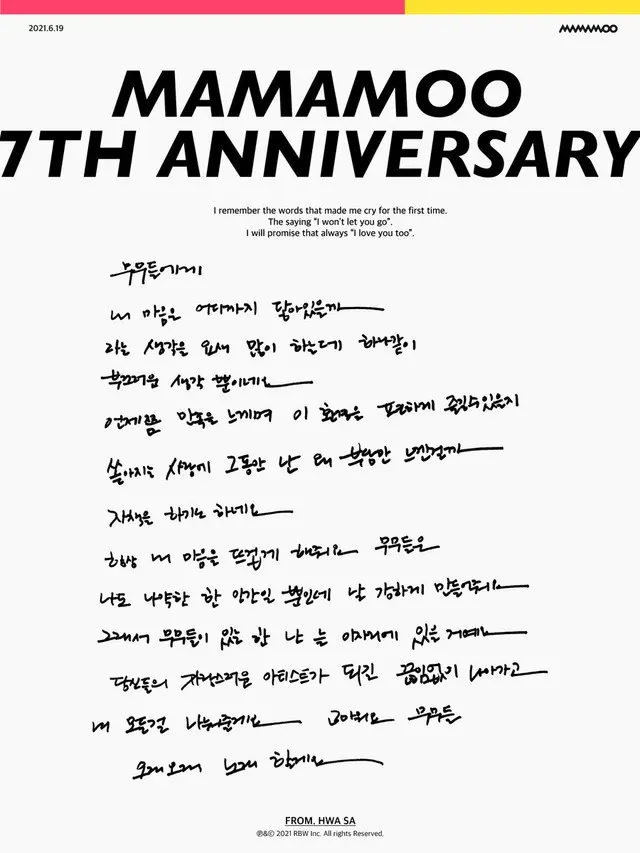 2021.6.19
MAMAMOO
MAMAMOO
7TH ANNIVERSARY
I remember the words that made me cry for the first time.
The saying “I won't let you go”.
I will promise that always “I love you too”.
무무들에게
내 마음은 어디까지 닿아있을까
라는 생각을 요새 많이 하는데 하나같이
부끄러운 생각 뿐이네요
언제쯤 만족을 느끼며 이 즐길수있을지
쏟아지는 사랑에 그동안 난 왜 부담만 느낀걸까
자책을 하기도 하네요
항상 내 마음을 뜨겁게 해줘요 무무들은
나도 나약한 한 인간일 뿐인데 날 강하게 만들어줘요
그래서 무무들이 있는 한 난 늘 이자리에 있을 거예요
당신들의 자랑스러운 아티스트가 끊임없이 나아가고
내 모든걸 나눠줄게요 고마워요 무무들
오래오래 노래 할게요
FROM. HWA SA
℗&© 2021 RBW Inc. All rights Reserved.